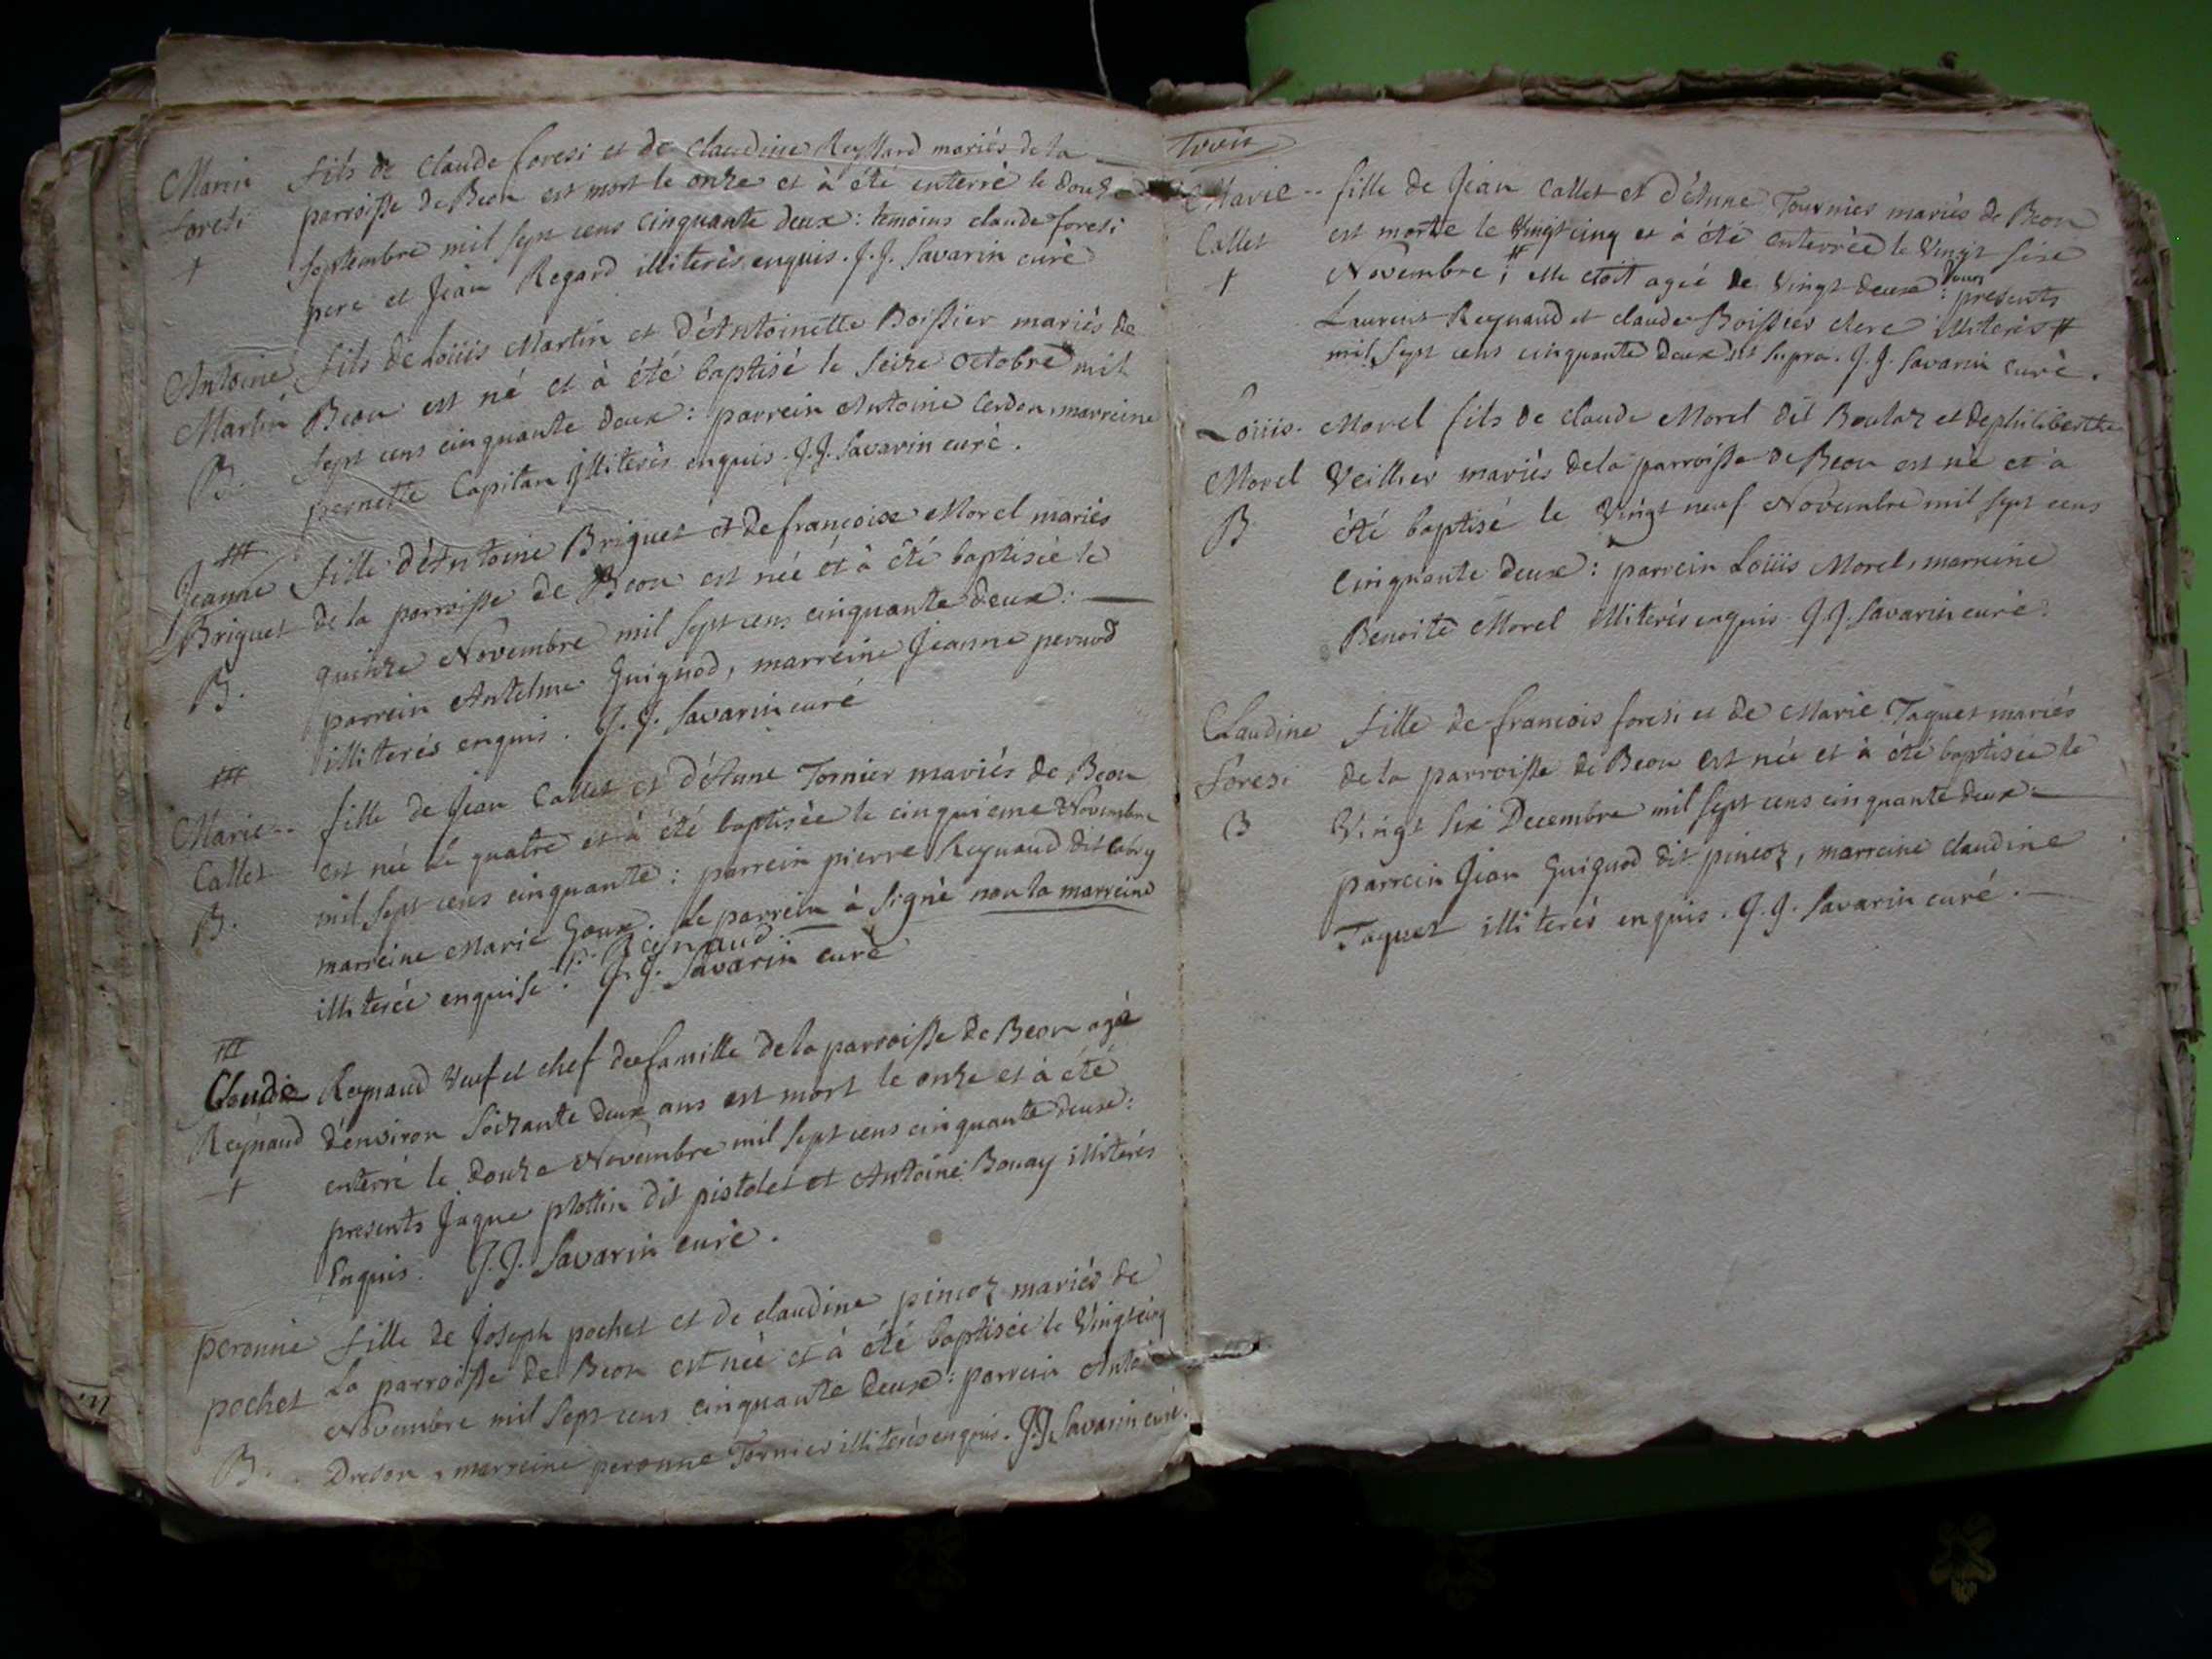 Marin fils de Claude foresi et de Claudine Reyllard mariés de la
foresi parroisse de Beon est mort le onze et à été enterré le douze
† Septembre mil sept cens cinquante deux : temoins claude foresi
pere et Jean Regard illiterés enquis. J. J. Savarin curé
Antoine fils de Loüis Martin et d'Antoinette Boissier mariés de
Martin Beon est né et à été baptisé le seize octobre mil
B. sept cens cinquante deux : parrein Antoine Cerdon, marreine
pernette Capitan illiterés enquis. J. J. Savarin curé.
Jeanne fille d'Antoine Briguet et de françoise Morel mariés
Briguet de la parroisse de Beon est née et à été baptisée le
B. quinze Novembre mil sept cens cinquante deux :
parrein Antelme Guignod, marreine Jeanne pernod
illiterés enquis. J. J. Savarin curé
Marie fille de Jean Callet et d'Anne Tornier mariés de Beon
Callet est née le quatre et à été baptisée le cinquieme Novembre
B. mil sept cens cinquante : parrein pierre Reynaud dit Cabry
marreine Marie Goux. le parrein à signé non la marreine
illiterée enquise. P. Reynaud. J. J. Savarin curé
Claude Reynaud veuf et chef de famille de la parroisse de Beon agé
Reynaud d'environ soixante deux ans est mort le onze et à été
† enterré le douze Novembre mil sept cens cinquante deux :
presents Jaque plottin dit pistolet et Antoine Bonay illiterés
Enquis. J. J. Savarin curé.
peronne fille de Joseph pochet et de claudine pincoz mariés de
pochet La parroisse de Beon est née et à été baptisée le Vingt cinq
Novembre mil sept cens cinquante deux : parrein Antoine
B. Dreson, marreine peronne Tornier illiterés enquis. J. J. Savarin curé.
trois
Marie fille de Jean Callet et d'Anne Tournier mariés de Beon
Callet est morte le Vingt cinq et à été enterrée le Vingt sixe
† Novembre ; # elle etoit ageé de Vingt deux jours : presents
Laurent Reynaud et claude Boissier clerc illiterés #
mil sept cens cinquante deux ut supra. J. J. Savarin curé.
Loüis Morel fils de claude Morel dit Boulaz et de philiberthe
Morel Veillier mariés de la parroisse de Beon est né et à
B été baptisé le Vingt neuf Novembre mil sept cens
Cinquante deux : parrein Loüis Morel, marreine
Benoite Morel illiterés enquis. J. J. Savarin curé.
Claudine fille de francois foresi et de Marie Taquet mariés
foresi de la parroisse de Beon est née et à été baptisée le
B Vingt Six Decembre mil sept cens cinquante deux :
parrein Jean Guignod dit pincoz, marreine claudine
Taquet illiterés enquis. J. J. Savarin curé.